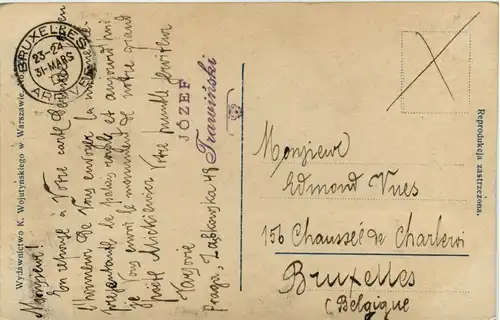 BRUXELLES
23-24
31-MARS
Wydawnictwo K. Wojutyńskiego w Warszawie.
Monsieur!
En réponse à Votre carte
l'honneur de Vous envoyer la
représentante le palais royale et aujourd'hui
je Vous envoi le monument de notre grand
poète Mickiewicz. Votre humble serviteur
JÓZEF
Trawiński
Varsovie
Praga, Ząbkowska 48
Monsieur
Edmond Vues
156 Chaussée de Charleroi
Bruxelles
(Belgique
Reprodukcja zastrzeżona.